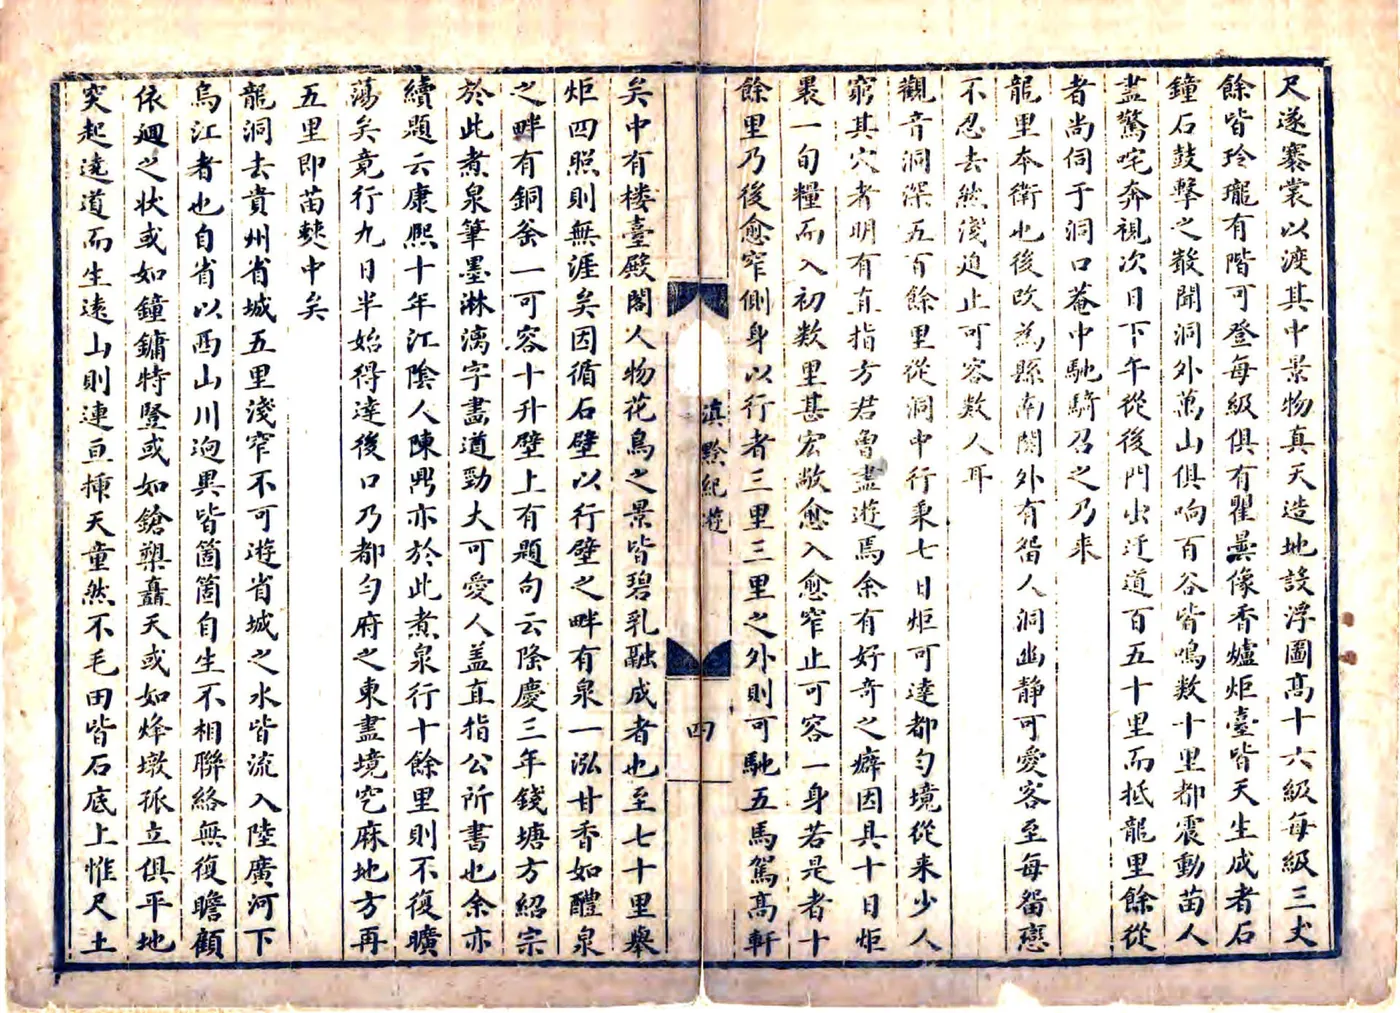 尺遂褰裳以渡其中景物真天造地設浮圖高十六級每級三丈
餘皆玲瓏有階可登每級俱有瞿曇像香爐炬臺皆天生成者石
鐘石鼓擊之散聞洞外萬山俱响百谷皆鳴数十里都震動苗人
盡驚咤奔視次日下午從後門出迂道百五十里而抵龍里餘從
者尚伺于洞口菴中馳騎召之乃来
龍里本衛也後改為縣南関外有畱人洞幽静可愛客至每畱戀
不忍去然淺迫止可容数人耳
觀音洞深五百餘里從洞中行乗七日炬可達都勻境從来少人
窮其穴者明有直指方君魯盡遊焉余有好奇之癖因具十日炬
裹一旬糧而入初数里甚宏敞愈入愈窄止可容一身若是者十
餘里乃後愈窄側身以行者三里三里之外則可馳五馬駕高軒
滇黔紀遊
四
矣中有楼臺殿閣人物花鳥之景皆碧乳融成者也至七十里舉
炬四照則無涯矣因循石壁以行壁之畔有泉一泓甘香如醴泉
之畔有銅釜一可容十升壁上有題句云隆慶三年錢塘方紹宗
於此煮泉筆墨淋漓字畫遒勁大可愛人盖直指公所書也余亦
續題云康熙十年江陰人陳鼎亦於此煮泉行十餘里則不復曠
蕩矣竟行九日半始得達後口乃都勻府之東盡境穵麻地方再
五里即苗㜑中矣
龍洞去貴州省城五里淺窄不可遊省城之水皆流入陸廣河下
烏江者也自省以西山川迥異皆箇箇自生不相聯絡無復瞻顧
依廻之状或如鐘鏞特豎或如鎗槊矗天或如烽墩孤立俱平地
突起遶道而生遠山則連亘揷天童然不毛田皆石底上惟尺土